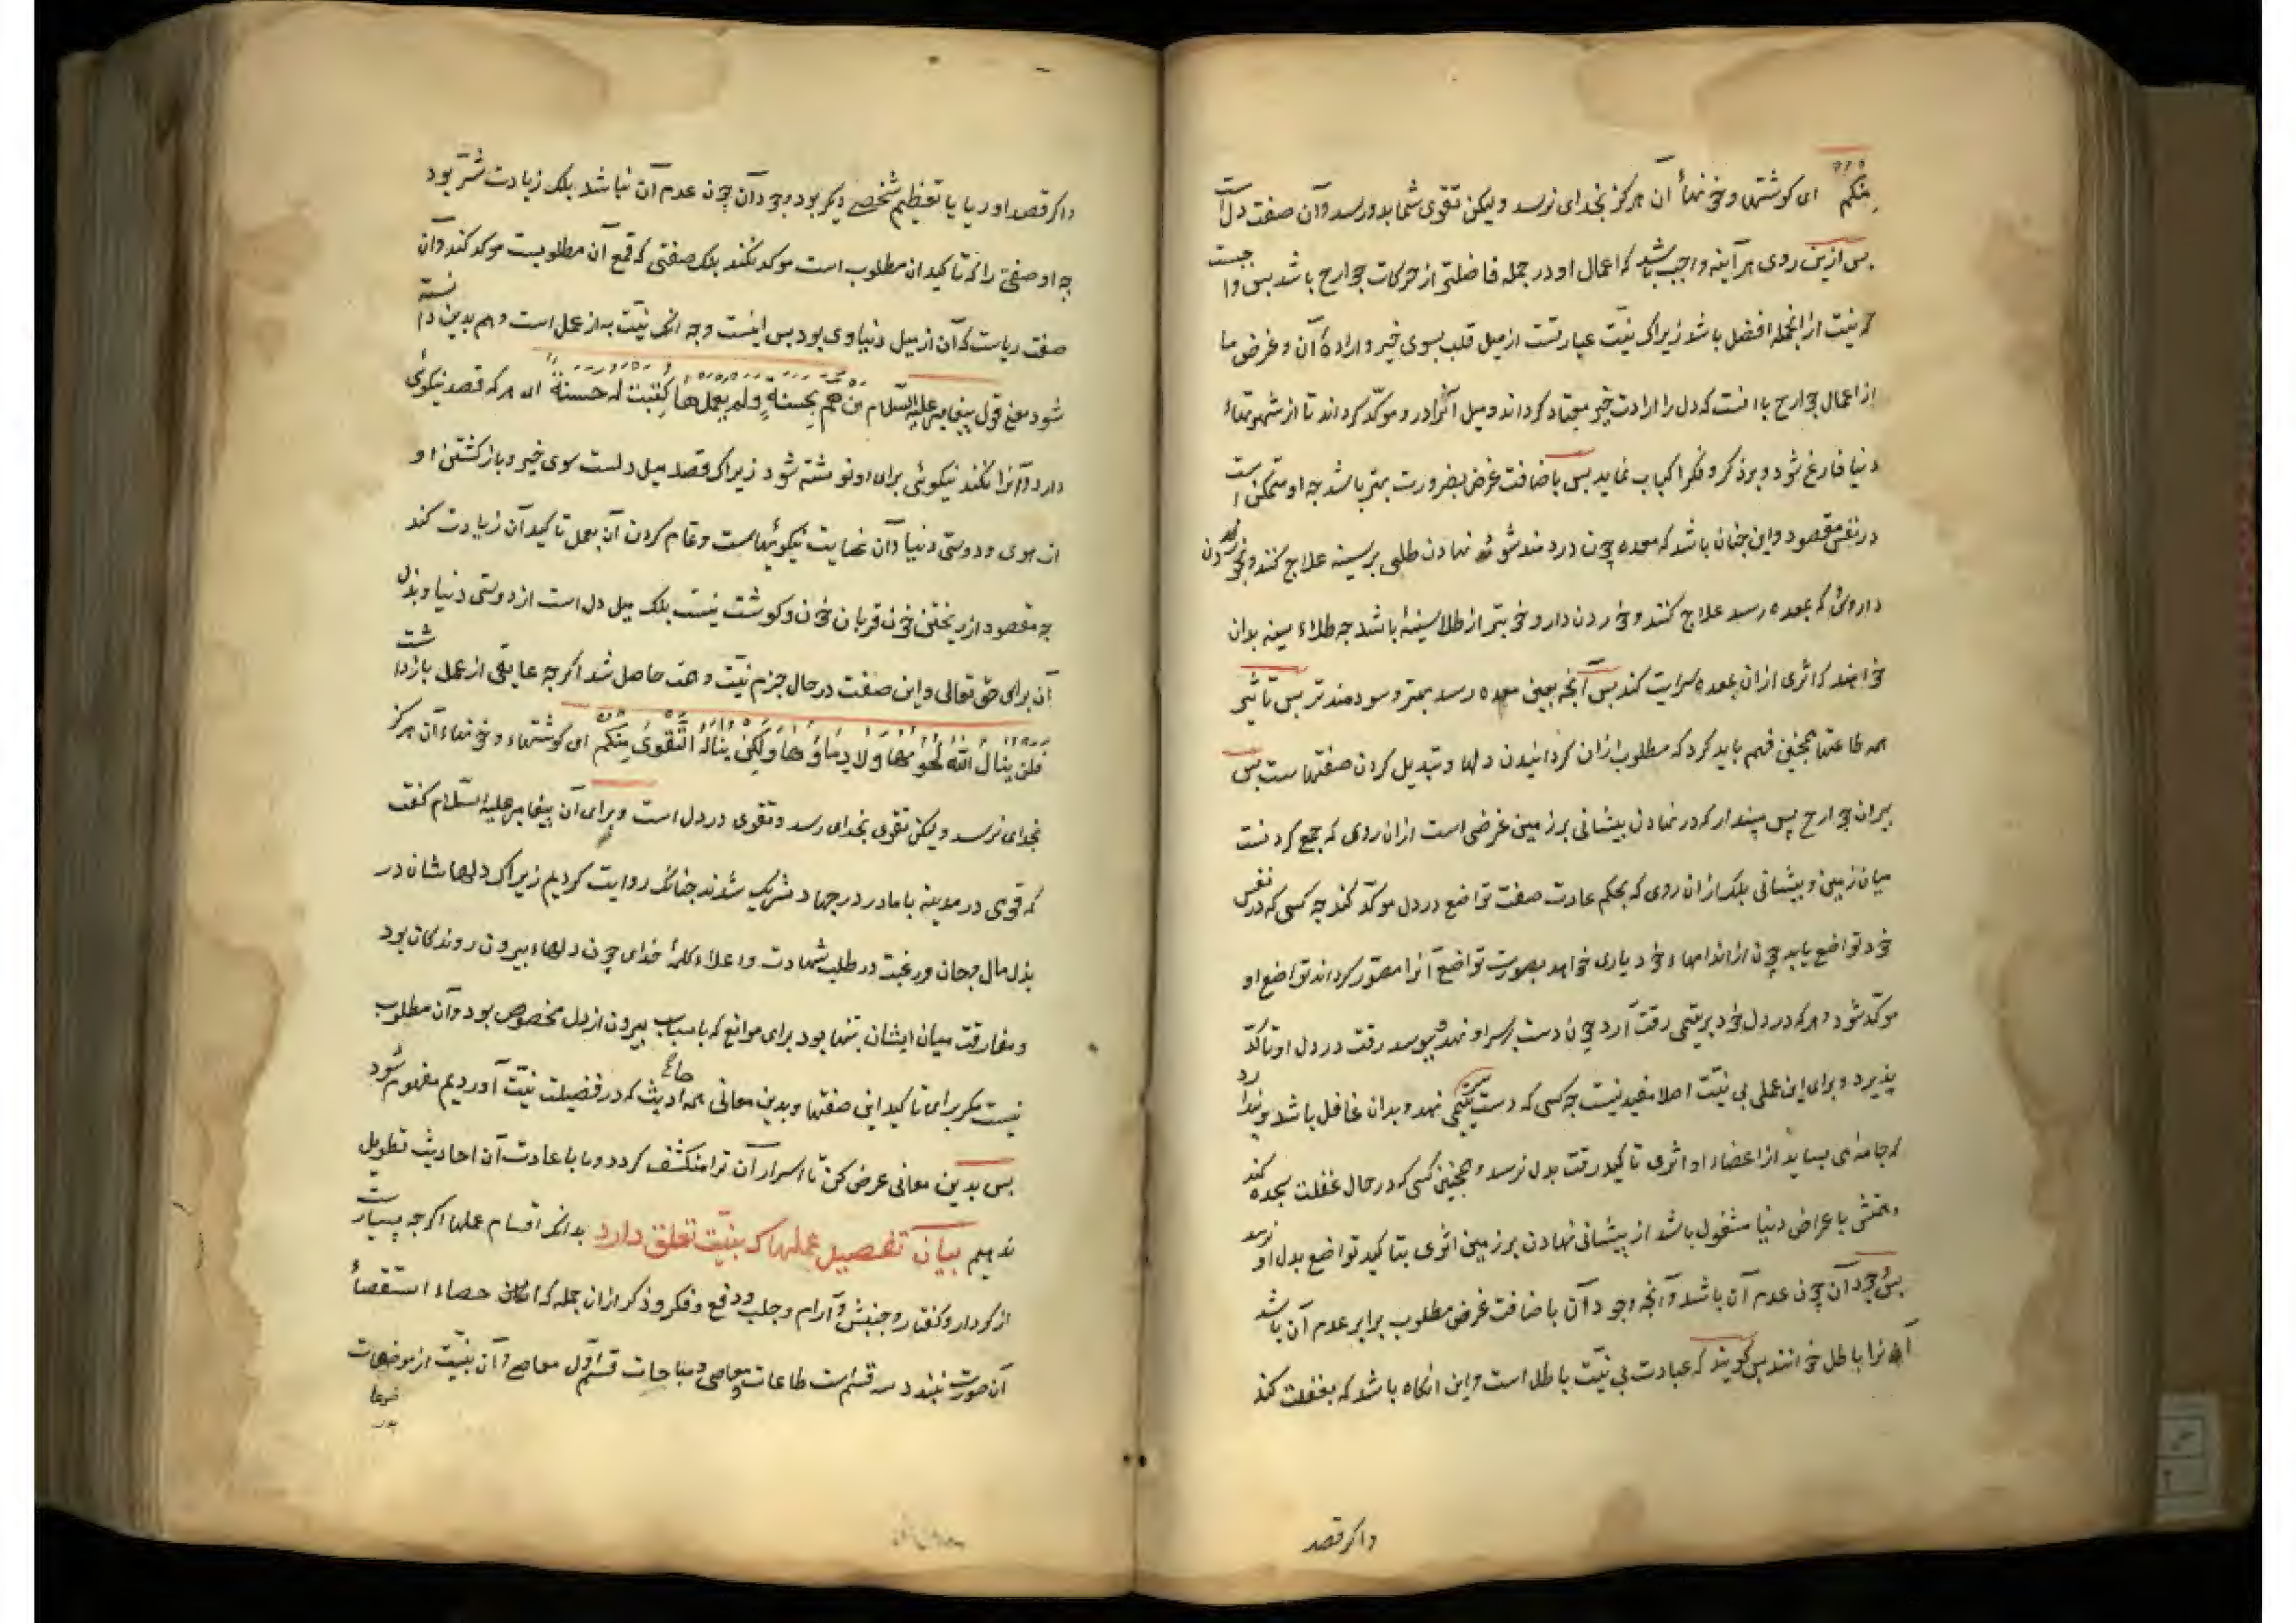 منکم ای کوشتها و خونهاٴ آن هرکز بخدای نرسد ولیکن تقوی شما بدو رسد وآن صفت دل است
بس ازین روی هر آینه واجب باشد که اعمال او در جمله فاضلتر از حرکات جوارح باشد بس واجبست
که نیت از انجمله افضل باشد زیراک نیّت عبارتست از میل قلب بسوی خیر و ارادهٴ آن و غرض ما
از اعمال جوارح با انست که دل را ارادت خیر معتاد کرداند ومیل آنرا درو موکّد کرداند تا از شهوتهاٴ
دنیا فارغ شود وبر ذکر و فکر اکباب نماید بس باضافت غرض بضرورت بهتر باشد چه او متمکن است
در نفس مقصود واین چنان باشد که معده چون دردمند شود نهادن طلی بر سینه علاج کنند وبخوردن
داروی که بمعده رسد علاج کنند وخوردن دارو خوبتر از طلا سینهٴ باشد چه طلاء سینه بدان
خواهند که اثری ازان بمعده سرایت کند بس آنچه بعین معده رسد بهتر وسودمندتر بس تاثیر
همه طاعتها همچنین فهم باید کرد که مطلوب ازان کردانیدن دلها وتبدیل کردن صفتهاست بس
بیران جوارح پس مپندار که در نهادن پیشانی بر زمین غرضی است ازان روی که جمع کردنست
میان زمین و پیشانی بلک ازان روی که بحکم عادت صفت تواضع در دل موکّد کند چه کسی که در نفس
خود تواضع یابد چون از اندامهاء خود یاری خواهد بصورت تواضع آنرا مصوّر کرداند تواضع او
موکّد شود و هرکه در دل خود بر یتیمی رقت آرد چون دست بر سر او نهد و ببوسد رقت در دل او تاکّد
پذیرد و برای این عمل بی نیّت اصلا مفید نیست چه کسی که دست بر سر یتیمی نهد وبدان غافل باشد و پندارد
که جامه‌ای بساید از اعضاء او اثری تاکید رقت بدل نرسد وهمچنین کسی که در حال غفلت سجده کند
وهمتش باعراض دنیا مشغول باشد از پیشانی نهادن بر زمین اثری بتاکید تواضع بدل او نرسد
بس وجود آن چون عدم آن باشد وآنچه وجود آن باضافت غرض مطلوب برابر عدم آن باشد
آن را باطل خوانند بس کویند که عبادت بی نیّت باطل است واین انکاه باشد که بغفلت کند
واکر قصد
واکر قصد او ریا یا تعظیم شخصی دیکر بود وجود آن چون عدم آن نباشد بلک زیادت شرّ بود
چه او صفتی را که تاکید ان مطلوب است موکد نکند بلک صفتی که قمع آن مطلوبست موکد کند وآن
صفت ریاست که آن از میل دنیاوی بود بس اینست وجه انک نیّت به از عمل است وهم بدین دانسته
شود معنی قول پیغامبر علیه السّلام من همّ بحسنةٍ ولم یعملها کتبت له حسنة ای هرکه قصد نیکوئی
دارد وآنرا نکند نیکوئی برای او نوشته شود زیراک قصد میل دلست سوی خیر وباز کشتن او
از هوی ودوستی دنیا وآن غایت نیکوئیهاست وتمام کردن آن بعمل تاکید آن زیادت کند
چه مقصود از ریختن خون قربان خون وکوشت نیست بلک میل دل است از دوستی دنیا وبذل
آن برای حق تعالی واین صفت در حال جزم نیّت وهمت حاصل شد اکرچه عایقی از عمل باز داشت
فلن ینال الله لحومها ولا دماؤها ولکن یناله التقوی منکم ای کوشتهاء وخونهاء آن هرکز
بخدای نرسد ولیکن تقوی بخدای رسد وتقوی در دل است وبرای آن پیغامبر علیه السّلام کفت
که قومی در مدینه با ما در درجهاد شریک شوند چنانک روایت کردیم زیراک دلهاشان در
بذل مال وجان ورغبت در طلب شهادت و اعلاء کلمهٴ خدای چون دلهاء بیرون روندکان بود
ومفارقت میان ایشان بتنها بود برای موانع که باسباب بیرون از دل مخصوص بود وآن مطلوب
نیست مکر برای تاکید این صفتها وبدین معانی همه احادیث که در فضیلت نیّت آوردیم مفهوم شود
بس بدین معانی عرض کن تا اسرار آن ترا منکشف کردد وما باعادت آن احادیث تطویل
ندهیم بیان تفصیل عملها که بنیّت تعلق دارد بدانک اقسام عملها اکرچه بسیارست
از کردار وکفتار وجنبش و آرام وجلب ودفع و فکر وذکر ازان جمله که امکان حصاء استقصاٴ
آن صورت نبندد سه قسم است طاعات ومعاصی ومباحات قسم اول معاصی وآن بنیّت از موضعات